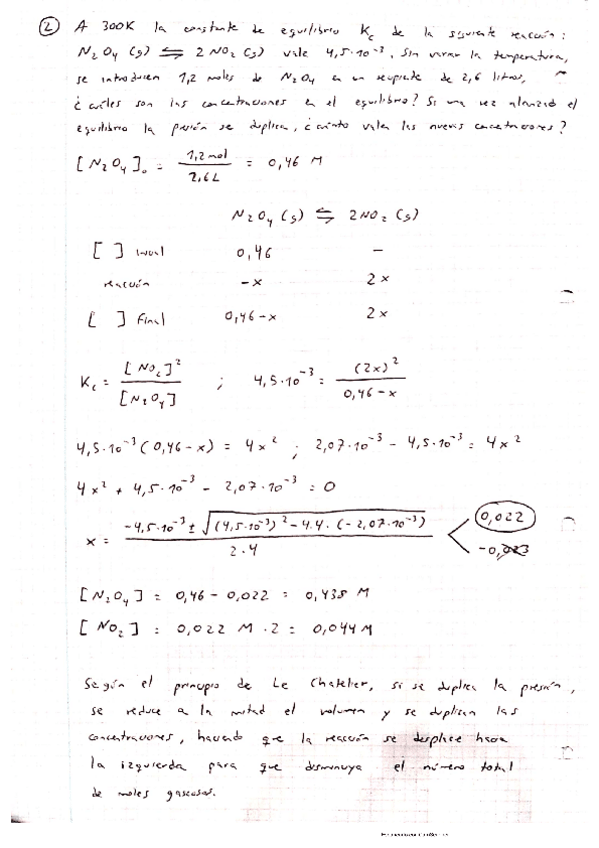 ② A 300K la constante de equilibrio Kc de la siguiente reacción:
N₂O₄ (g) ⇌ 2 NO₂ (g) vale 4,5·10⁻³. Sin variar la temperatura,
se introducen 1,2 moles de N₂O₄ en un recipiente de 2,6 litros,
¿cuáles son las concentraciones en el equilibrio? Si una vez alcanzado el
equilibrio la presión se duplica, ¿cuánto valen las nuevas concentraciones?
[N₂O₄]₀ = 1,2 mol / 2,6 L = 0,46 M
N₂O₄ (g) ⇌ 2NO₂ (g)
[ ] inicial 0,46 –
reacción -x 2x
[ ] final 0,46-x 2x
Kc = [NO₂]² / [N₂O₄] ; 4,5·10⁻³ = (2x)² / 0,46-x
4,5·10⁻³ (0,46-x) = 4x² ; 2,07·10⁻³ - 4,5·10⁻³ = 4x²
4x² + 4,5·10⁻³ - 2,07·10⁻³ = 0
x = -4,5·10⁻³ ± √(4,5·10⁻³)² - 4·4·(-2,07·10⁻³) / 2·4 < 0,022
-0,023
[N₂O₄] = 0,46 - 0,022 = 0,438 M
[NO₂] = 0,022 M · 2 = 0,044 M
Según el principio de Le Chatelier, si se duplica la presión,
se reduce a la mitad el volumen y se duplican las
concentraciones, haciendo que la reacción se desplace hacia
la izquierda para que disminuya el número total
de moles gaseosos.